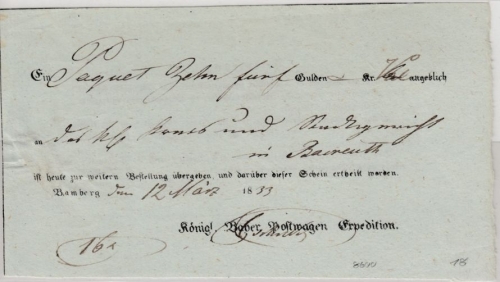 Ein Paquet Zehn fünf Gulden — Kr. angeblich
an das Kgl. Kreis und Stadtgericht
in Baireuth
ist heute zur weitern Bestellung übergeben, und darüber dieser Schein ertheilt worden.
Bamberg den 12 März 1833
Königl. Bayer. Postwagen Expedition.
16x
18